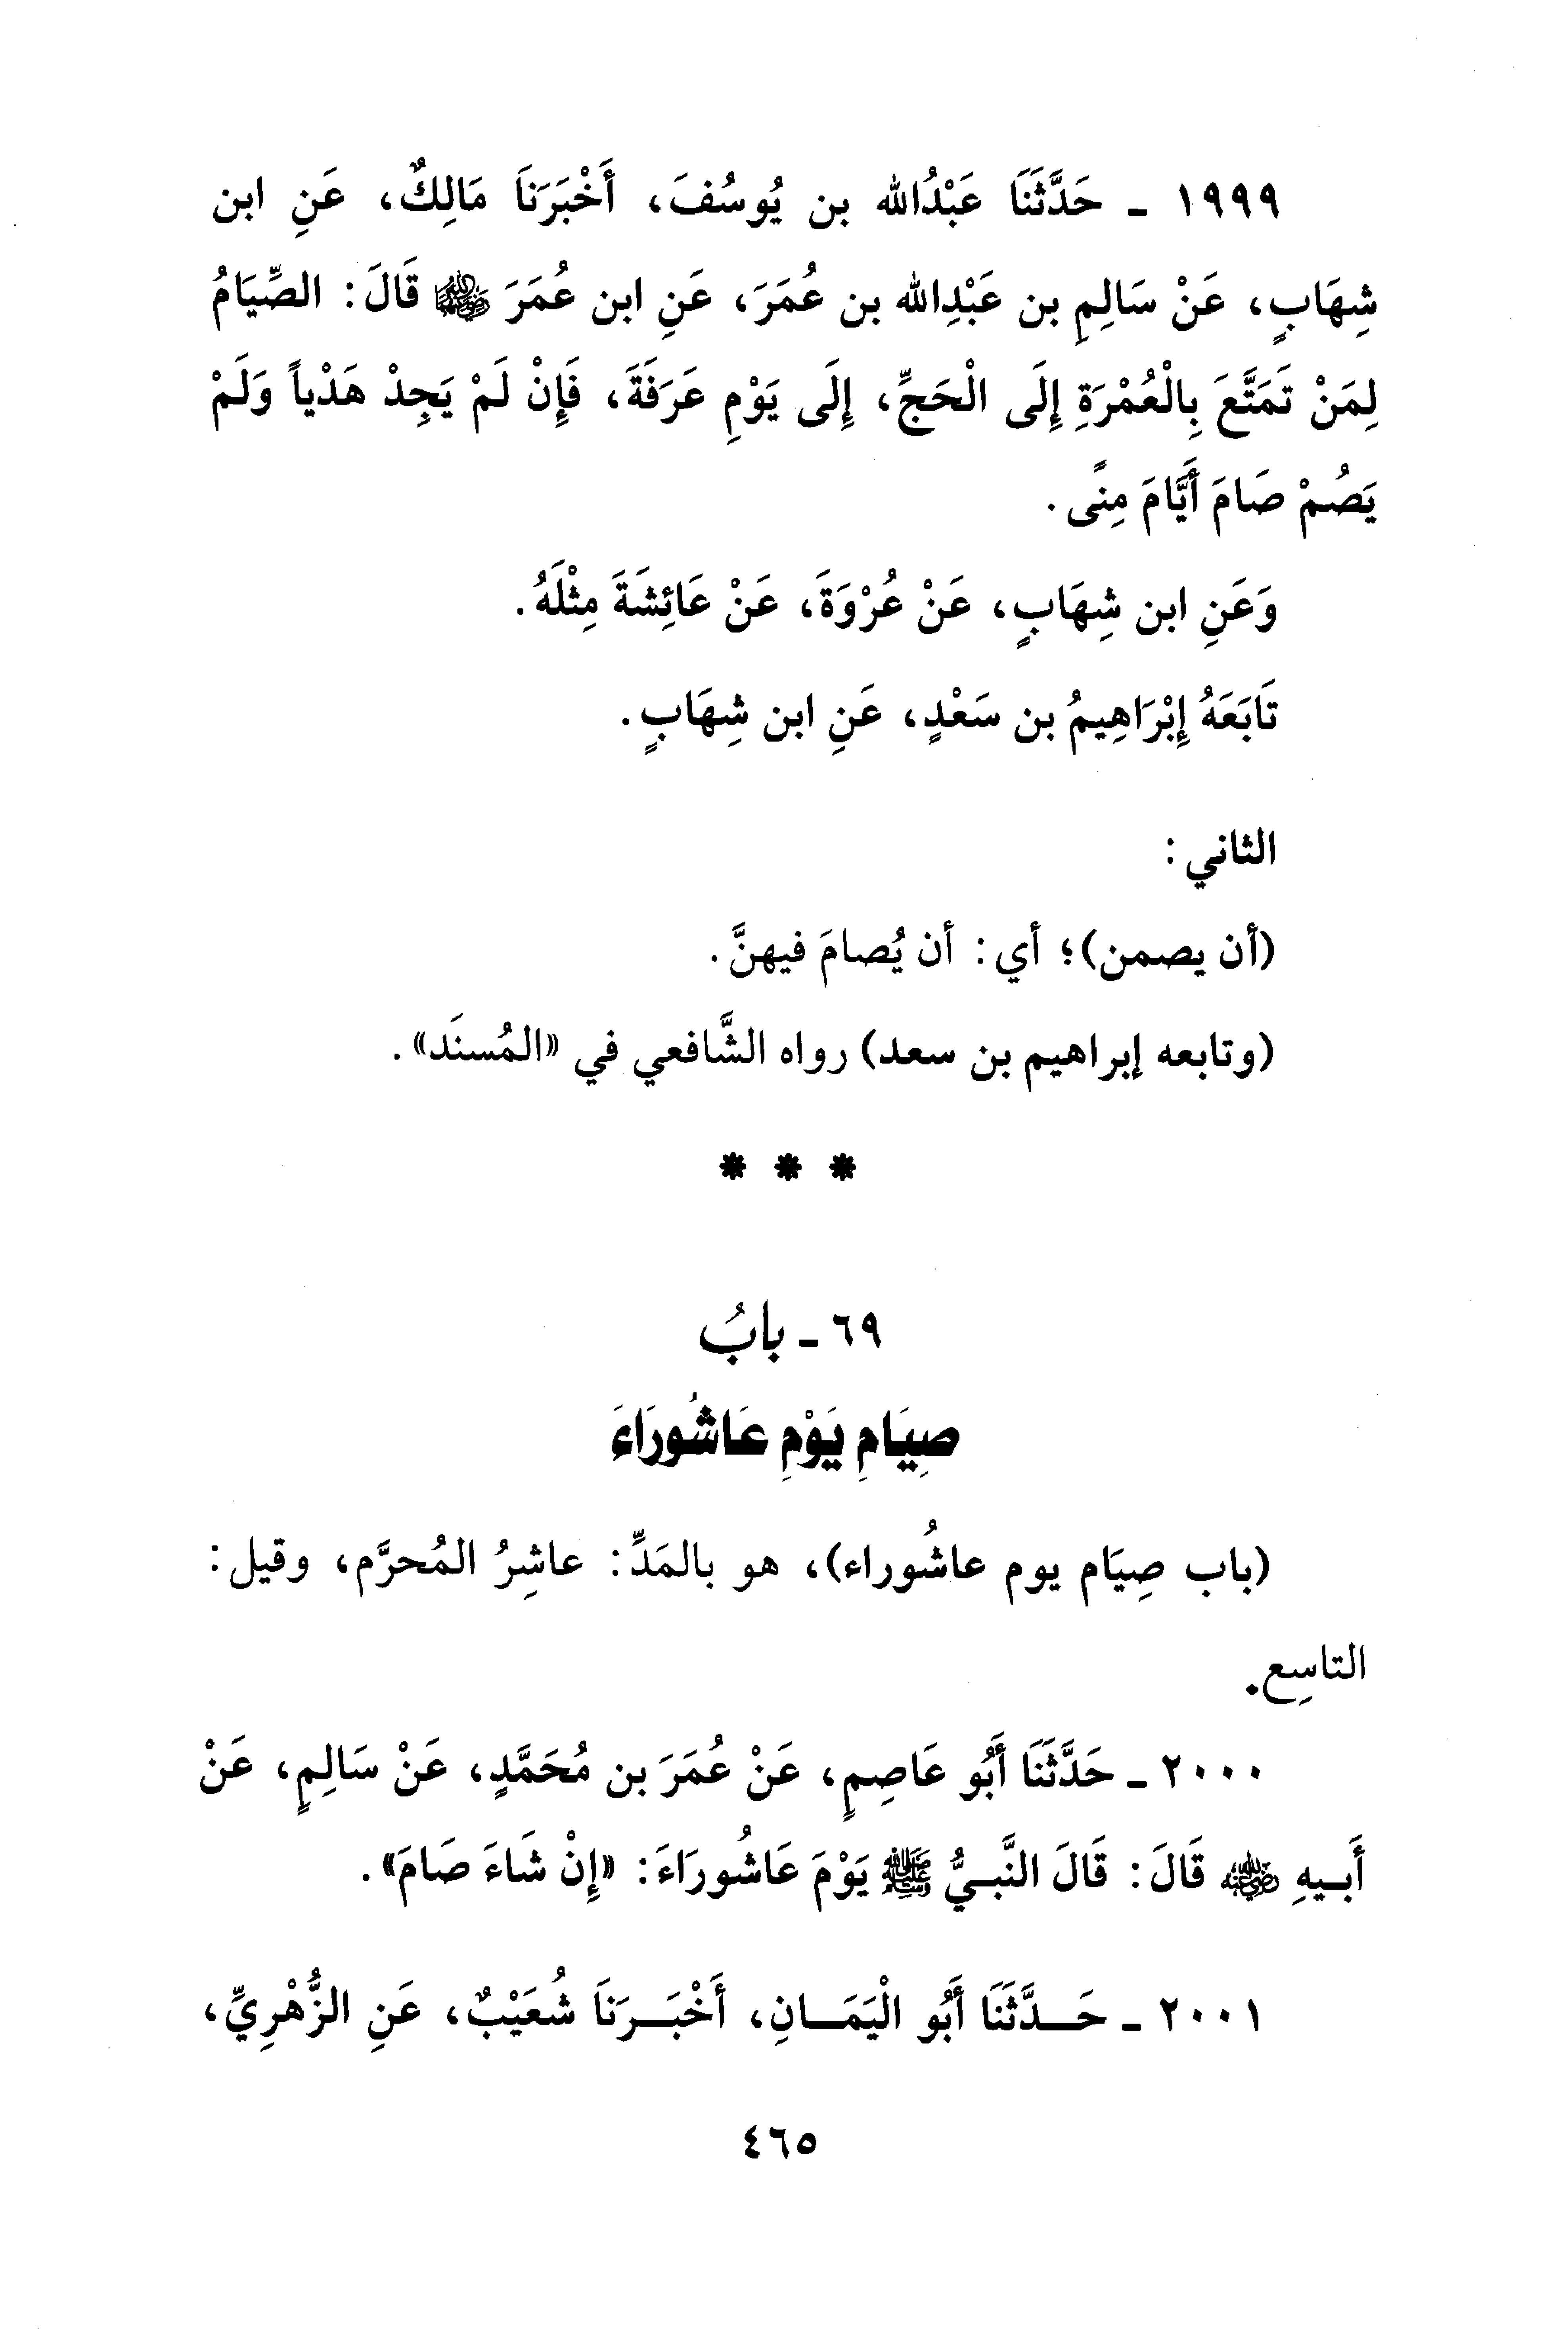 ١٩٩٩ ـ حَدَّثَنَا عَبْدُالله بن يُوسُفَ، أَخْبَرَنَا مَالِكٌ، عَنِ ابن
شِهَابٍ، عَنْ سَالِمِ بن عَبْدِالله بن عُمَرَ، عَنِ ابن عُمَرَ ﵄ قَالَ: الصِّيَامُ
لِمَنْ تَمَتَّعَ بِالْعُمْرَةِ إِلَى الْحَجِّ، إِلَى يَوْمِ عَرَفَةَ، فَإِنْ لَمْ يَجِدْ هَدْياً وَلَمْ
يَصُمْ صَامَ أَيَّامَ مِنًى.
وَعَنِ ابن شِهَابٍ، عَنْ عُرْوَةَ، عَنْ عَائِشَةَ مِثْلَهُ.
تَابَعَهُ إِبْرَاهِيمُ بن سَعْدٍ، عَنِ ابن شِهَابٍ.
الثاني:
(أن يصمن)؛ أي: أن يُصامَ فيهنَّ.
(وتابعه إبراهيم بن سعد) رواه الشَّافعي في «المُسنَد».
* * *
٦٩ ـ بابُ
صِيَامِ يَوْمِ عَاشُورَاءَ
(باب صِيَام يوم عاشُوراء)، هو بالمَدِّ: عاشِرُ المُحرَّم، وقيل:
التاسِع.
٢٠٠٠ ـ حَدَّثَنَا أَبُو عَاصِمٍ، عَنْ عُمَرَ بن مُحَمَّدٍ، عَنْ سَالِمٍ، عَنْ
أَبِيهِ ﵁ قَالَ: قَالَ النَّبِيُّ ﷺ يَوْمَ عَاشُورَاءَ: «إِنْ شَاءَ صَامَ».
٢٠٠١ ـ حَدَّثَنَا أَبُو الْيَمَانِ، أَخْبَرَنَا شُعَيْبٌ، عَنِ الزُّهْرِيِّ،
٤٦٥